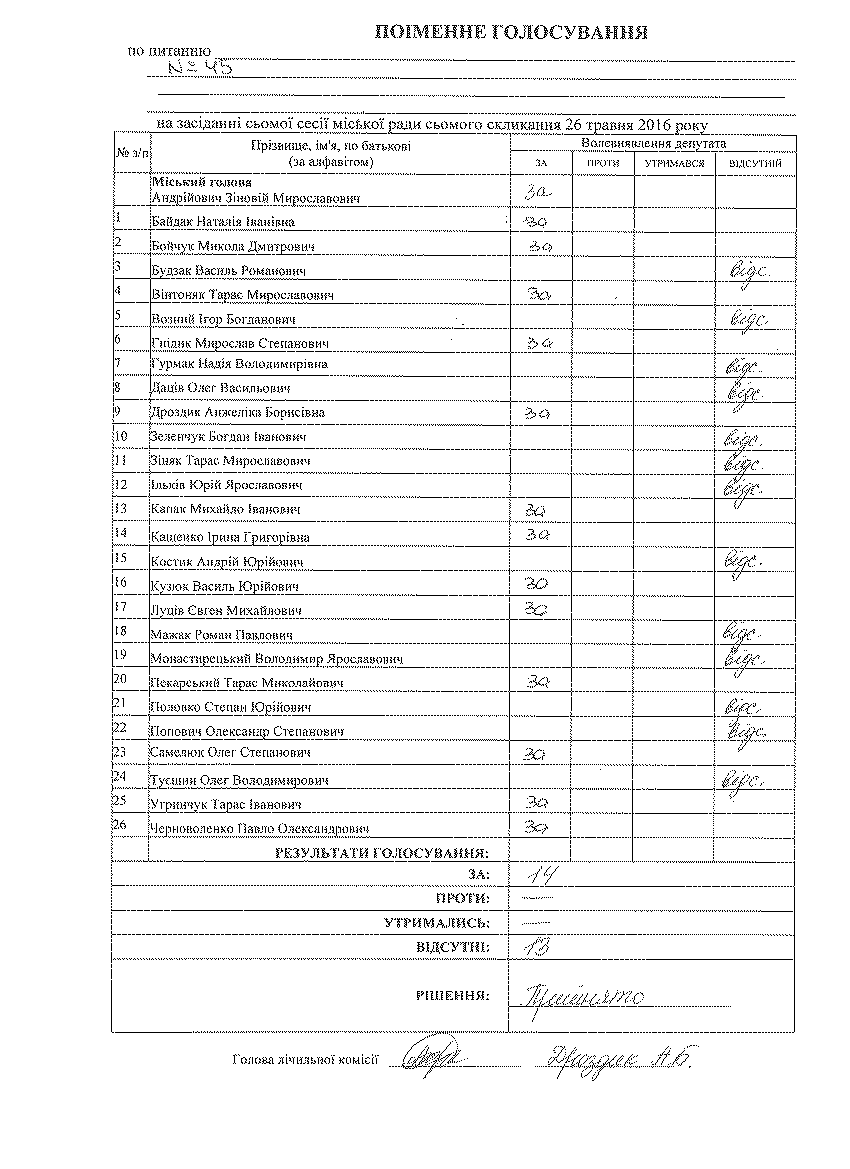 ПОІМЕННЕ ГОЛОСУВАННЯ
по питанню
№ 45
на засіданні сьомої сесії міської ради сьомого скликання 26 травня 2016 року
№ з/п Прізвище, ім'я, по батькові (за алфавітом) Волевиявлення депутата
ЗА ПРОТИ УТРИМАВСЯ ВІДСУТНІЙ
Міський голова
Андрійович Зіновій Мирославович за
1 Байдак Наталія Іванівна за
2 Бойчук Микола Дмитрович за
3 Будзак Василь Романович відс.
4 Вінтоняк Тарас Мирославович за
5 Возний Ігор Богданович відс.
6 Гнідик Мирослав Степанович за
7 Гурмак Надія Володимирівна відс.
8 Даців Олег Васильович відс.
9 Дроздик Анжеліка Борисівна за
10 Зеленчук Богдан Іванович відс.
11 Зіняк Тарас Мирославович відс.
12 Ільків Юрій Ярославович відс.
13 Капак Михайло Іванович за
14 Кащенко Ірина Григорівна за
15 Костик Андрій Юрійович відс.
16 Кузюк Василь Юрійович за
17 Луців Євген Михайлович за
18 Мажак Роман Павлович відс.
19 Монастирецький Володимир Ярославович відс.
20 Пекарський Тарас Миколайович за
21 Половко Степан Юрійович відс.
22 Попович Олександр Степанович відс.
23 Самелюк Олег Степанович за
24 Туєшин Олег Володимирович відс.
25 Угринчук Тарас Іванович за
26 Черноволенко Павло Олександрович за
РЕЗУЛЬТАТИ ГОЛОСУВАННЯ:
ЗА: 14
ПРОТИ: —
УТРИМАЛИСЬ: —
ВІДСУТНІ: 13
РІШЕННЯ: Прийнято
Голова лічильної комісії Дроздик А.Б.